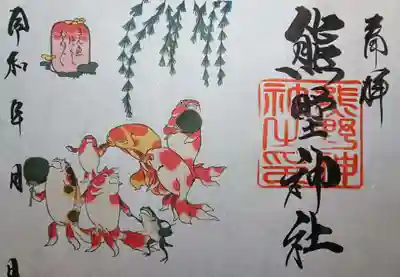 奉拝
熊野神社
熊野神
社之印
令和 年 月 日